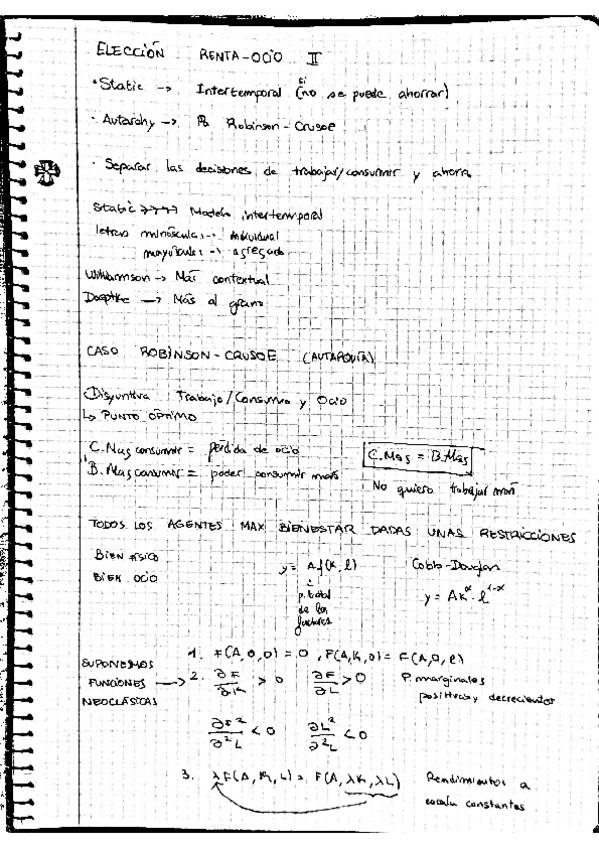 ELECCIÓN RENTA-OCIO II
• Static -> Intertemporal (no se puede ahorrar)
• Autarchy -> Robinson-Crusoe
• Separar las decisiones de trabajar/consumir y ahorra
Static Modelo intertemporal
letras minúsculas -> individual
mayúsculas -> agregado
Williamson -> Más contextual
Doepke -> Más al grano
CASO ROBINSON-CRUSOE (AUTARQUÍA)
Disyuntiva: Trabajo/Consumo y Ocio
↳ PUNTO ÓPTIMO
C.Mag consumir = pérdida de ocio
B.Mag consumir = poder consumir más
C.Mag = B.Mag
No quiero trabajar más
TODOS LOS AGENTES MAX BIENESTAR DADAS UNAS RESTRICCIONES
BIEN FÍSICO
BIEN OCIO
y = A f(K, l)
p. total
de los
factores
Cobb-Douglas
y = AK^α · l^(1-α)
SUPONEMOS
FUNCIONES ->
NEOCLÁSICAS
1. F(A, 0, 0) = 0, F(A, K, 0) = F(A, 0, l)
2. ∂F/∂K > 0 ∂F/∂L > 0 P. marginales
positivas y decrecientes
∂F²/∂²L < 0 ∂L²/∂²L < 0
3. λF(A, K, L) = F(A, λK, λL) Rendimientos a
escala constantes